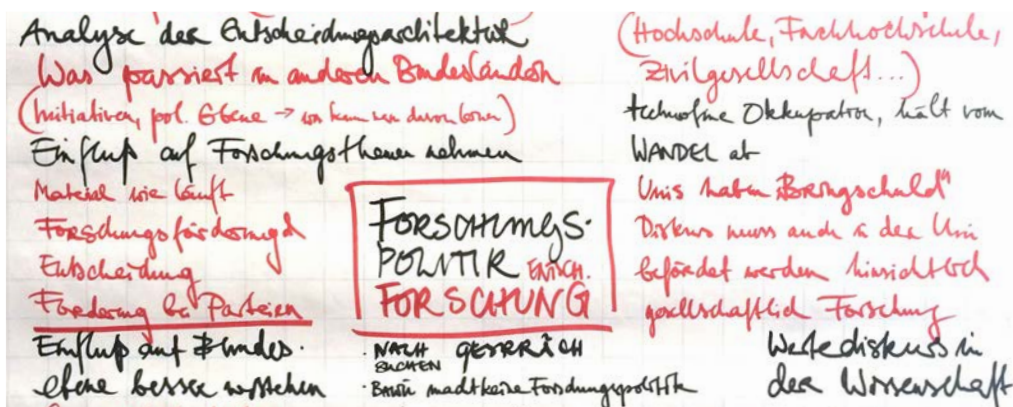 Analyse der Entscheidungsarchitektur
Was passiert in anderen Bundesländern
(Initiativen, pol. Ebene → wo kann man davon lernen)
Einfluß auf Forschungsthemen nehmen
Material wie läuft
Forschungsförderung
Entscheidung
Forderung bei Parteien
Einfluß auf Bundes-
ebene besser verstehen
FORSCHUNGS-
POLITIK ENTSCH.
FORSCHUNG
· NACH GESPRÄCH
SUCHEN
· BaWü macht keine Forschungspolitik
(Hochschule, Fachhochschule,
Zivilgesellschaft...)
Okkupation, hält vom
WANDEL ab
Unis haben "Bringschuld"
Diskurs muss auch in der Uni
befördet werden hinsichtlich
gesellschaftlich Forschung
Wertediskurs in
der Wissenschaft